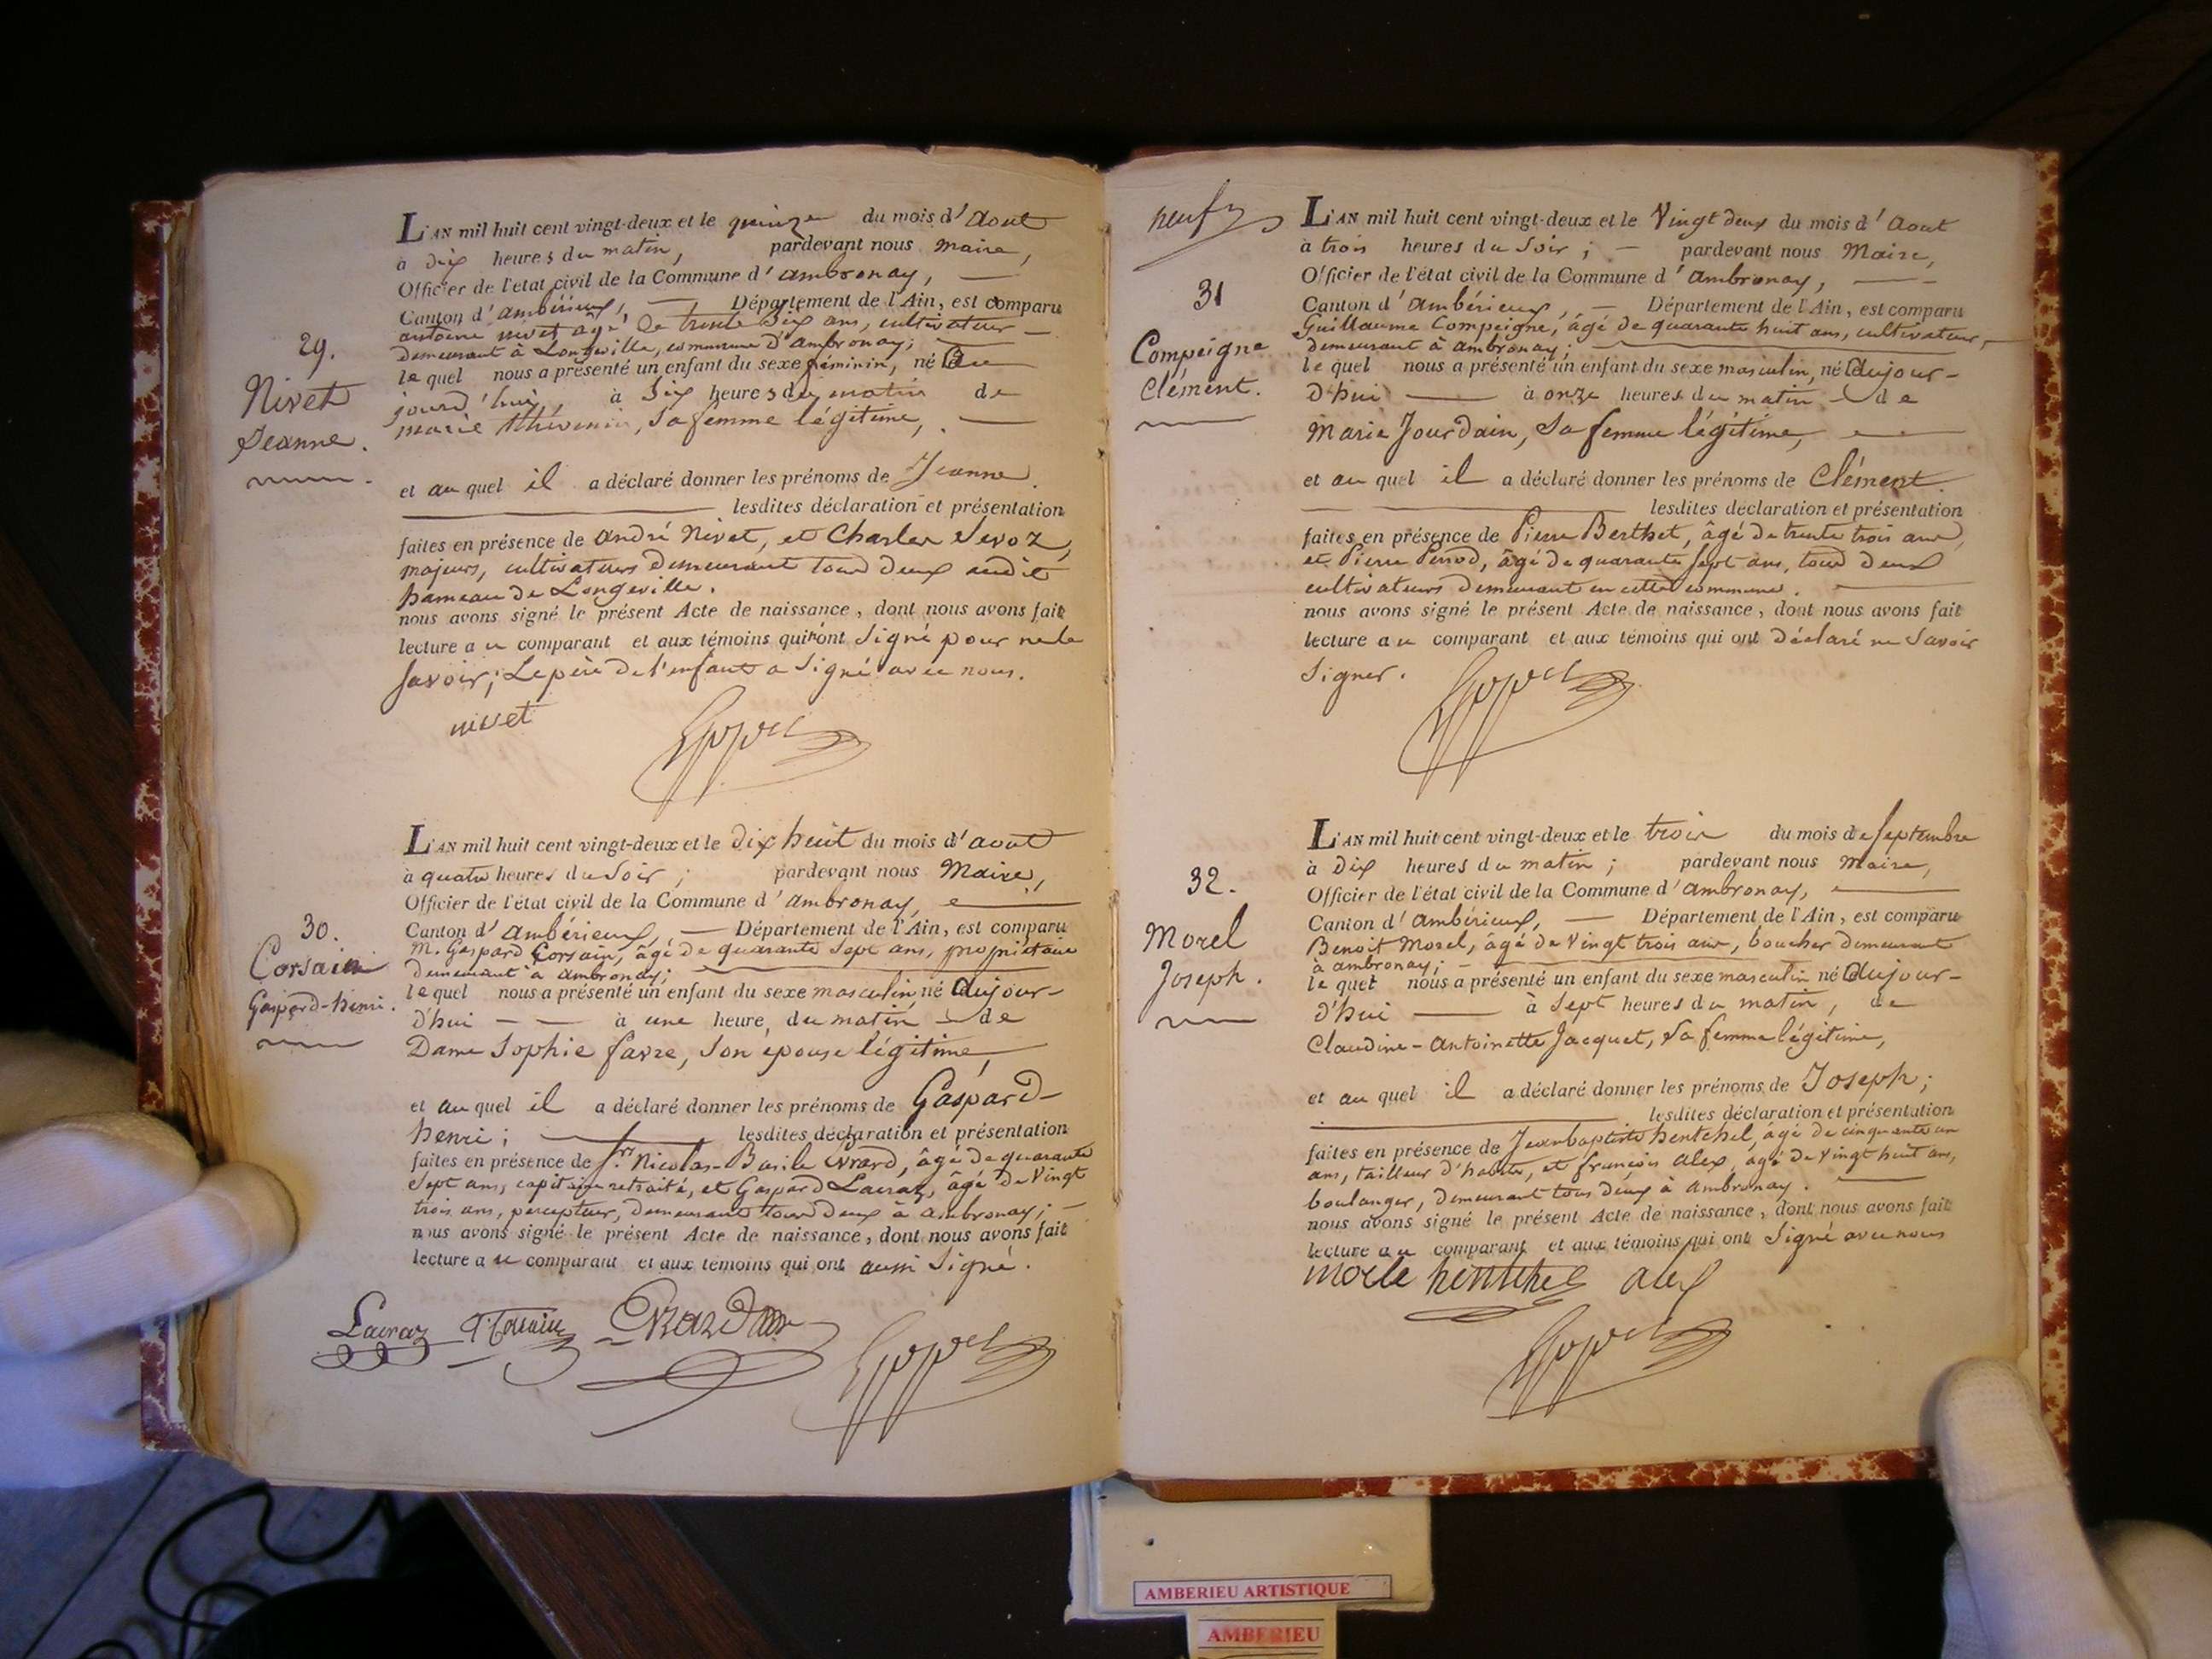 29.
Nivet
Jeanne.
L'AN mil huit cent vingt-deux et le quinze du mois d'Aout
à dix heures du matin, pardevant nous maire,
Officier de l'état civil de la Commune d'ambronay,
Canton d'ambérieux, Département de l'Ain, est comparu
antoine nivet âgé de trente six ans, cultivateur
demeurant à Longeville, commune d'ambronay;
lequel nous a présenté un enfant du sexe féminin, né Cau
jourd'hui, à six heures du matin de
marie thévenin, sa femme légitime,
et auquel il a déclaré donner les prénoms de Jeanne.
lesdites déclaration et présentation
faites en présence de andré Nivet, et Charles Sevoz,
majeurs, cultivateurs demeurant tous deux audit
hameau de Longeville.
nous avons signé le présent Acte de naissance, dont nous avons fait
lecture au comparant et aux témoins qui n'ont signé pour ne le
savoir; Le père de l'enfant a signé avec nous.
nivet
30.
Corsain
Gaspard-henri.
L'AN mil huit cent vingt-deux et le dix huit du mois d'aout
à quatre heures du soir; pardevant nous Maire,
Officier de l'état civil de la Commune d'ambronay,
Canton d'ambérieux, Département de l'Ain, est comparu
M. Gaspard Corsain, âgé de quarante sept ans, propriétaire
demeurant à ambronay;
lequel nous a présenté un enfant du sexe masculin né aujour-
d'hui à une heure, du matin de
Dame Sophie favre, son épouse légitime,
et auquel il a déclaré donner les prénoms de Gaspard-
henri; lesdites déclaration et présentation
faites en présence de Sr. Nicolas-Basile Evrard, âgé de quarante
sept ans, capitaine retraité, et Gaspard Lauraz, âgé de Vingt
trois ans, percepteur, demeurant tous deux à ambronay;
nous avons signé le présent Acte de naissance, dont nous avons fait
lecture au comparant et aux témoins qui ont aussi signé.
Lauraz Evrard
neuf
31
Compeigne
Clément.
L'AN mil huit cent vingt-deux et le Vingt deux du mois d'Aout
à trois heures du soir; pardevant nous Maire,
Officier de l'état civil de la Commune d'ambronay,
Canton d'ambérieux, Département de l'Ain, est comparu
Guillaume Compeigne, âgé de quarante huit ans, cultivateur,
demeurant à ambronay;
lequel nous a présenté un enfant du sexe masculin, né aujour-
d'hui à onze heures du matin de
Marie Jourdain, sa femme légitime,
et auquel il a déclaré donner les prénoms de Clément.
lesdites déclaration et présentation
faites en présence de Pierre Berthet, âgé de trente trois ans,
et Pierre Perrod, âgé de quarante sept ans, tous deux
cultivateurs demeurant en cette commune.
nous avons signé le présent Acte de naissance, dont nous avons fait
lecture au comparant et aux témoins qui ont déclaré ne savoir
signer.
32.
Morel
Joseph.
L'AN mil huit cent vingt-deux et le trois du mois de septembre
à dix heures du matin; pardevant nous maire,
Officier de l'état civil de la Commune d'ambronay,
Canton d'ambérieux, Département de l'Ain, est comparu
Benoit Morel, âgé de Vingt trois ans, boucher demeurant
à ambronay;
lequel nous a présenté un enfant du sexe masculin né aujour-
d'hui à sept heures du matin, de
Claudine-Antoinette Jacquet, sa femme légitime,
et auquel il a déclaré donner les prénoms de Joseph;
lesdites déclaration et présentation
faites en présence de Jean baptiste hentchel, âgé de cinquante un
ans, tailleur d'habits, et françois alex, âgé de vingt huit ans,
boulanger, demeurant tous deux à ambronay.
nous avons signé le présent Acte de naissance, dont nous avons fait
lecture au comparant et aux témoins qui ont signé avec nous
morle hentchel alex
AMBERIEU ARTISTIQUE
AMBERIEU